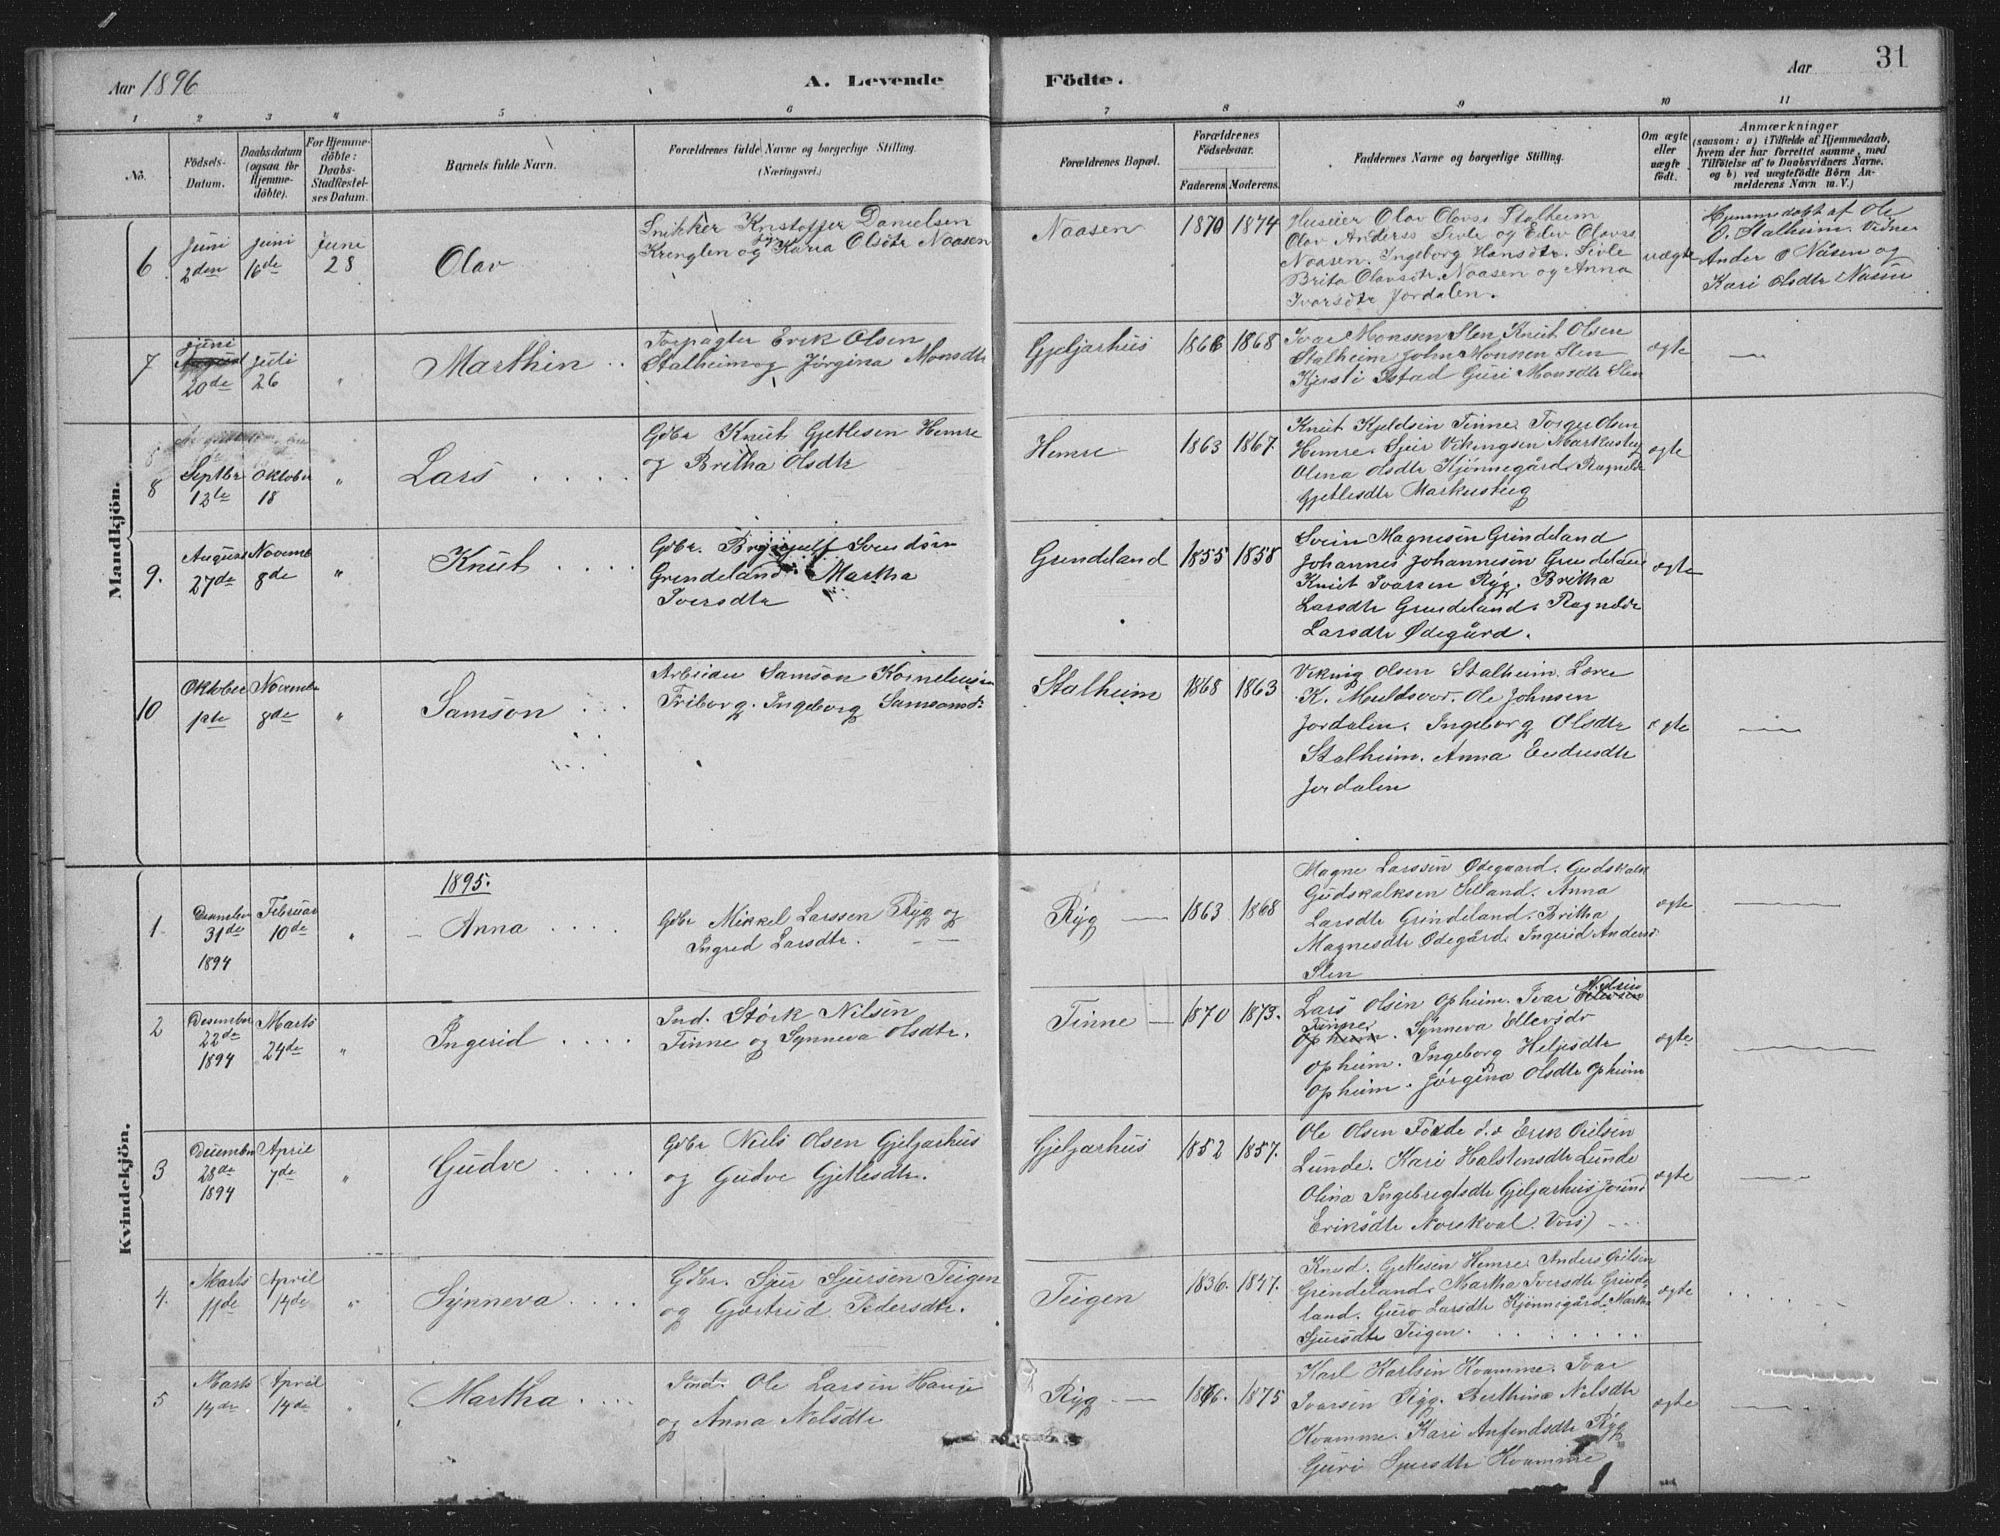 Aar 1896
A. Levende
Födte.
Aar
31
1
2
3
4
5
6
7
8
9
10
11
No.
Födsels-
Datum.
Daabsdatum
(ogsaa for
Hjemme-
döbte).
For Hjemme-
döbte:
Daabs-
Stadfæstel-
ses Datum.
Barnets fulde Navn.
Forældrenes fulde Navne og borgerlige Stilling.
(Næringsvei.)
Forældrenes Bopæl.
Forældrenes
Födselsaar.
Faderens.
Moderens.
Faddernes Navne og borgerlige Stilling.
Om ægte
eller
uægte
födt.
Anmærkninger
(saasom: a) i Tilfælde af Hjemmedaab,
hvem der har forrettet samme, med
Tilföielse af to Daabsvidners Navne,
og b) ved uægtefödte Börn An-
melderens Navn m. V.)
Mandkjön.
6
Juni
2den
Juni
16de
June
28
Olav
Snikker Kristoffer Danielsen
Krenglen og Karia Olsdtr Naasen
Naasen
1870
1874
Huseier Olav Olavss Stalheim
Olav Anderss Sivle og Edev Olavss
Naasen. Ingeborg Hansdtr. Sivle
Brita Olavsdtr. Naasen og Anna
Ivarsdtr Jordalen.
uægte
Hjemmedøbt af Ole
O. Stalheim. Vidner
Ander O Nåsen og
Kari Olsdtr Nåsen
7
juni
August
20de
Juli
26
"
Marthin
Forpagter Erik Olsen
Stalheim og Jørgina Monsdtr
Gjeljarhus
1866
1868
Ivar Monssen Slen Knut Olsen
Stalheim John Monssen Slen
Kjersti Istad Guri Monsdtr Slen
ægte
8
Septbr
13te
Oktober
18
"
Lars
Gdbr Knut Gjetlesen Hemre
og Britha Olsdtr
Hemre
1863
1867
Knut Kjeldsen Tinne Torger Olsen
Hemre. Sjur Vikingsen Markusteig
Olina Olsdtr Kjønnegård Ragnilde
Gjetlesdtr Markusteig
ægte
9.
August
27de
Novemb
8de
"
Knut
Gdbr. Brynjulf Svendsen
Grendeland. Martha
Iversdtr
Grendeland
1855
1858
Svein Magnesen Grindeland
Johannes Johannesen Grendeland
Knut Ivarsen Ryg. Britha
Larsdtr Grendeland. Ragnilde
Larsdtr Ødegård.
ægte
10
Oktober
1ste
November
8de
"
Samson
Arbeider Samson Korneliusen
Friborg. Ingeborg Samsonsd.
Stalheim
1868
1863
Viking Olsen Stalheim. Lars
K. Muldsvor. Ole Johnsen
Jordalen. Ingeborg Olsdtr
Stalheim. Anna Endresdtr
Jordalen
ægte
Kvindekjön.
1895.
1.
December
31de
1894
Februar
10de
"
Anna
Gdbr Mikkel Larssen Ryg og
Ingred Larsdtr.
Ryg
1863
1868
Magne Larssen Ødegaard. Gudskalk
Gudskalksen Selland. Anna
Larsdtr Grindeland. Britha
Magnesdtr Ødegård. Ingerid Andersd
Slen
ægte
2
Desember
22de
1894
Marts
24de
"
Ingerid
Ind. Størk Nilsen
Tinne og Synneva Olsdtr.
Tinne
1870
1873.
Lars Olsen Opheim. Ivar Nilsen
Tinne
Opheim. Synneva Ellevsdr
Opheim. Ingeborg Heljesdtr
Opheim. Jørgina Olsdtr Opheim
ægte
3
December
28de
1894
April
7de
"
Gudve
Gdbr Niels Olsen Gjeljarhus
og Gudve Gjetlesdtr.
Gjeljarhus
1852
1857.
Ole Olsen Førde d.o Erik Nilsen
Lunde. Kari Halstensdtr Lunde
Olina Ingebregtsdtr Gjeljarhus Jorund
Eriksdtr Norskval Vors)
ægte
4.
Marts
11de
April
14de
"
Synneva
Gdbr. Sjur Sjursen Teigen
og Gjertrud Pedersdtr.
Teigen
1836.
1847.
Knud. Gjetlesen Hemre. Anders Nilsen
Grendeland. Martha Iversdtr Grinde
land. Guro Larsdtr Kjønnegård. Martha
Sjursdtr Teigen.
ægte
5
Marts
14de
April
14de
"
Martha
Ind. Ole Larsen Hauge
og Anna Nelsdtr
Ryg
1866.
1875
Karl Karlsen Kvamme. Ivar
Ivarsen Ryg. Berthine Nelsdtr
Kvamme. Kari Anfindsdtr Ryg
Guri Sjursdtr Kvamme
ægte